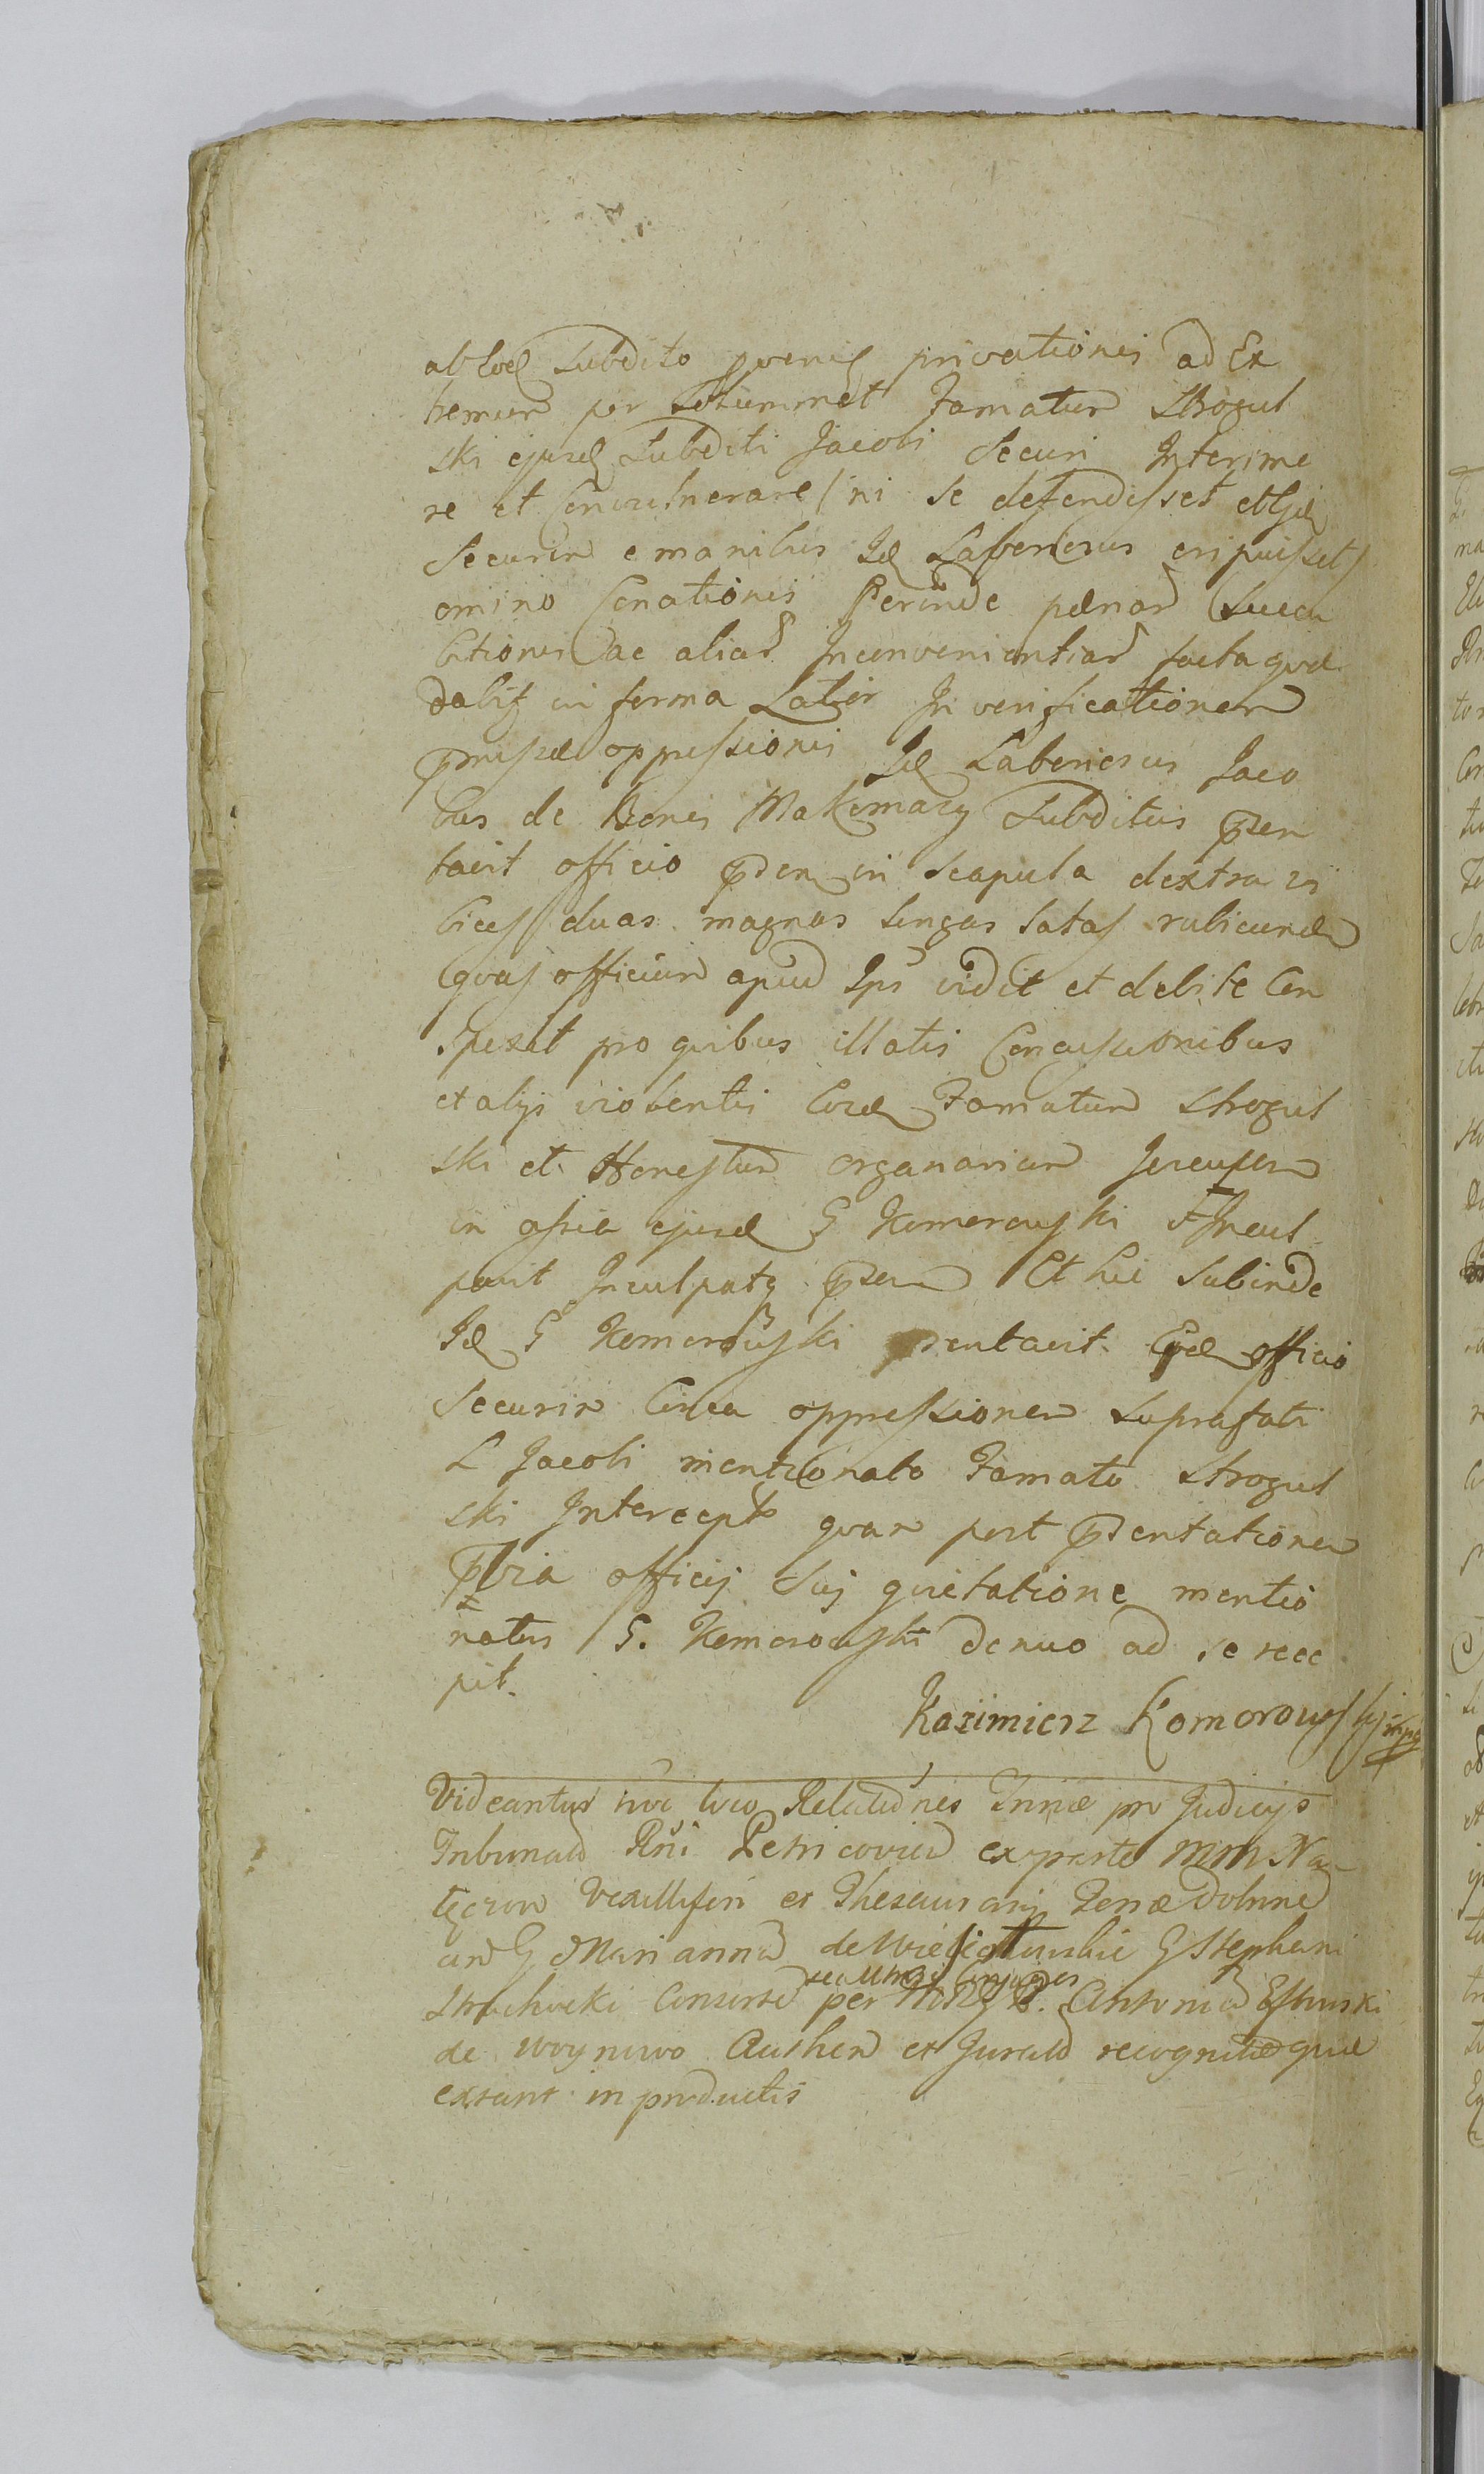 ab eod subdito privationis ad Ex
tremum per Semetmet Famatum Strogul
ski ejusd Subditi Jacobi Securi Interime
re et Convulnerare / ni se defendisset et
Securim e manibus Id Laboriosus eripuisset /
omino Conationis Perinde paenar Succu
bitionis ac aliar Inconvenientiar facta quae
dabitq in forma Latior In verificationem
praemissae oppressionis Id Laboriosus Jaco
bus de Bonis Makomazy Subditus
tavit officio in scapula dextra vi
bices duas magnas longas latas rubicund
quas officium apud Ips vidit et debite Con
spexit pro quibus illatis Concussionibus
et alijs violentis Eund Famatum Strogul
ski et Honestum organarium
in assia ejusd G Komorowski Incul
pavit Inculpatq Et hic Subinde
Id G Komorowski sentavit Eid officio
Securim Circa oppressionem Suprafati
L Jacobi mentionato Famato Strogul
ski Intercept quam post praesentationem
pria officij Sui quietatione mentio
natus G. Komorowski denuo ad se rece
pit.
Kazimierz Komorowsky mpp
Videantur hoc loco Relationes Innae pro Judicijs
Tribunal Rni Petricovien ex parte MM Na
Vexilliferi et Thesaurarij Terrae Dobrinen
ac G Marianna de G Stephani
Conjuges
Consorte per G Antonium
de woynowo Authen et Jurato recognitae quae
extant in productis